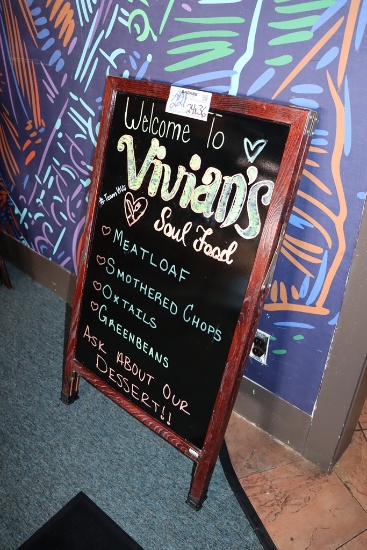 221
24x36
Welcome To
Vivian's
Soul Food
Meatloaf
Smothered Chops
Oxtails
Greenbeans
Ask About Our
Dessert!!